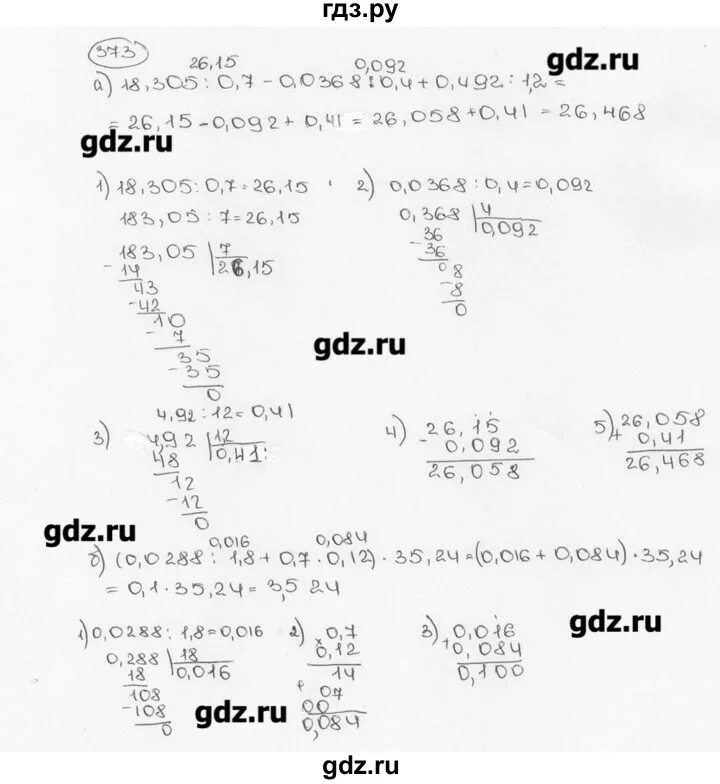 гдз.ру
373
26,15 0,092
gdz.ru
а) 18,305 : 0,7 - 0,0368 : 0,4 + 0,492 : 1,2 =
= 26,15 - 0,092 + 0,41 = 26,058 + 0,41 = 26,468
gdz.ru
1) 18,305 : 0,7 = 26,15
2) 0,0368 : 0,4 = 0,092
183,05 : 7 = 26,15
0,368 4
36 0,092
- 36
08
- 8
0
183,05 7
- 14 26,15
43
- 42
10
- 7
35
- 35
0
gdz.ru
4,92 : 12 = 0,41
3) 4,92 12
48 0,41
12
- 12
0
4) - 26,15
0,092
26,058
5) + 26,058
0,41
26,468
gdz.ru
0,016 0,084
б) (0,0288 : 1,8 + 0,7 · 0,12) · 35,24 = (0,016 + 0,084) · 35,24
= 0,1 · 35,24 = 3,524
gdz.ru
1) 0,0288 : 1,8 = 0,016
0,288 18
18 0,016
108
- 108
0
2) × 0,7
0,12
14
+ 07
00
0,084
3) + 0,016
0,084
0,100
gdz.ru